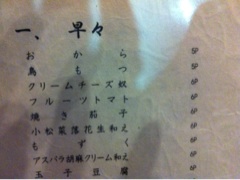 一、 早々
おから
鳥もつ
クリームチーズ奴
フルーツトマト
焼き茄子
小松菜落花生和え
もずく
アスパラ胡麻クリーム和え
玉子豆腐